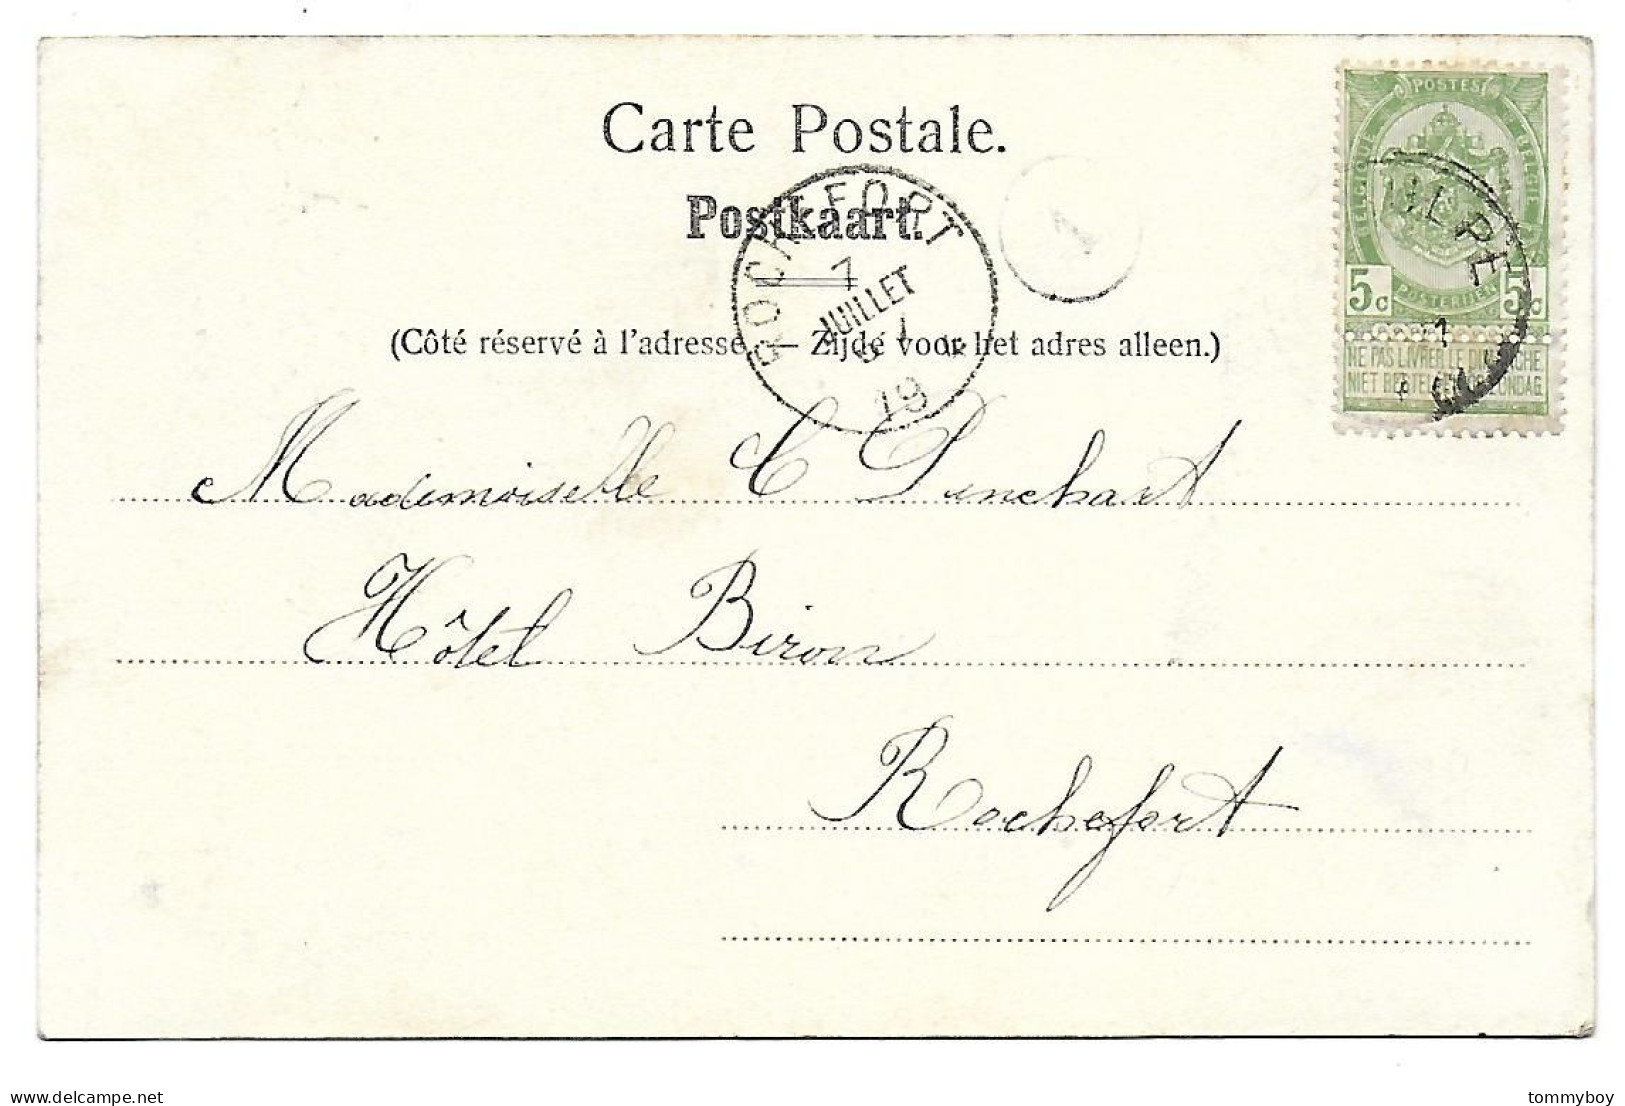 Carte Postale.
Postkaart.
(Côté réservé à l'adresse — Zijde voor het adres alleen.)
ROCHEFORT
7
JUILLET
19
1
POSTES
BELGIQUE
BELGIE
5c 5c
POSTERIJEN
NE PAS LIVRER LE DIMANCHE
NIET BESTELLEN OP ZONDAG.
Mademoiselle C Punchart
Hôtel Biron
Rochefort
Delcampe.net
tommyboy